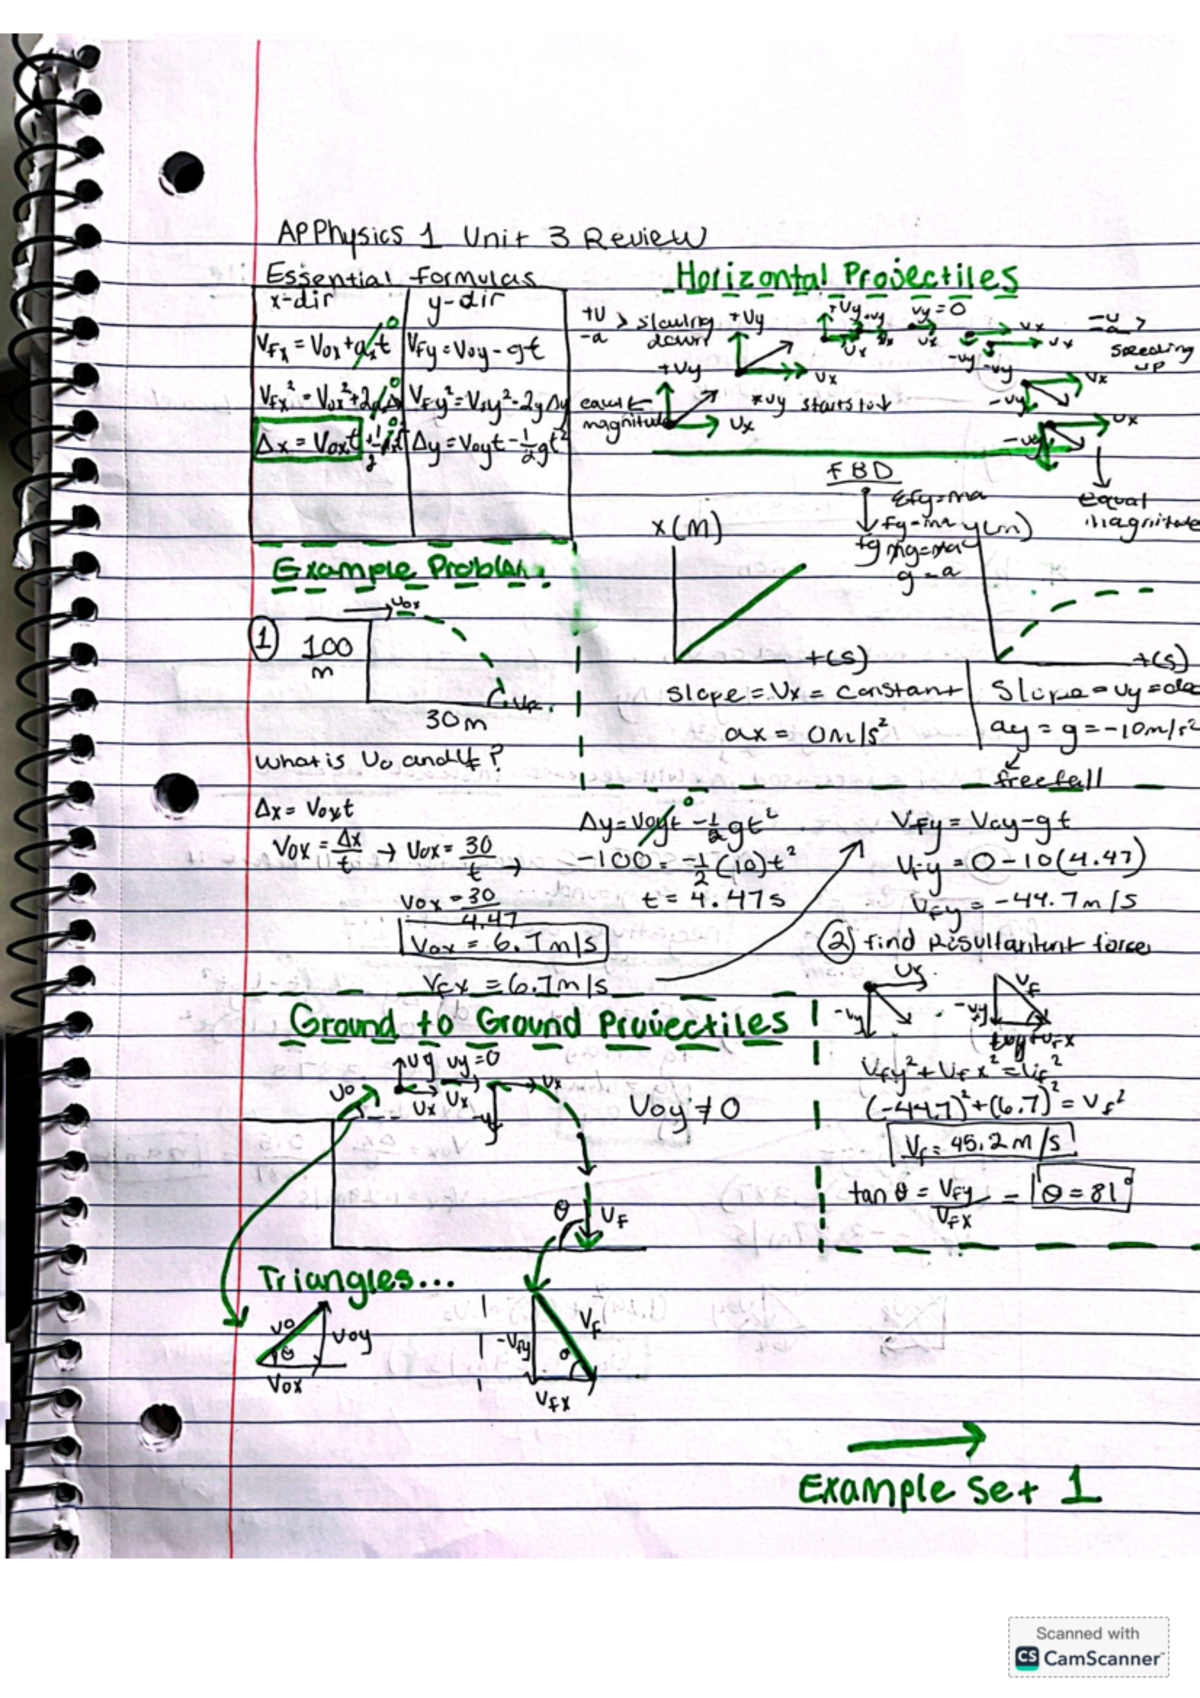 AP Physics 1 Unit 3 Review
Essential formulas
x-dir
y-dir
Vfx = Vox + axt 0
Vfy = Voy - gt
Vfx² = Vox² + 2 0
Vfy² = Voy² - 2y Δy
Δx = Voxt + 1/2 0
Δy = Voyt - 1/2 gt²
Horizontal Projectiles
+v
-a > slowing down
+Vy
Vx
+Vy
Vx
equal magnitude
+Vy
+vy
vy = 0
Vx
Vx
Vx
*vy starts to ↓
-vy
-vy
Vx
Vx
-v
-a >
speeding up
-vy
Vx
-vy
Vx
equal magnitude
FBD
Σfy = ma
fy = ma
fg
mg = ma
g = a
x (M)
t (s)
slope = Vx = constant
ax = 0 m/s²
y (m)
t (s)
Slope = vy = dec
ay = g = -10 m/s²
freefall
Example Problem
1
100 m
Vox
Vf
30 m
what is Vo and Vf?
Δx = Voxt
Vox = Δx/t → Vox = 30/t →
Vox = 30/4.47
Vox = 6.7 m/s
Vfx = 6.7 m/s
Δy = Voyt 0 - 1/2 gt²
-100 = -1/2 (10)t²
t = 4.47 s
Vfy = Voy - gt
Vfy = 0 - 10(4.47)
Vfy = -44.7 m/s
2 find Resultantent force
Vx
-vy
Vf
-vy
Vfx
Vfy² + Vfx² = Vf²
(-44.7)² + (6.7)² = Vf²
Vf = 45.2 m/s
tan θ = Vfy/Vfx = θ = 81°
Ground to Ground Projectiles
Vo
vy
vy = 0
Vx
Vx
Vx
-y
Voy ≠ 0
θ
Vf
Triangles...
Vo
θ
Voy
Vox
-Vfy
Vf
θ
Vfx
Example Set 1
Scanned with
CS CamScanner